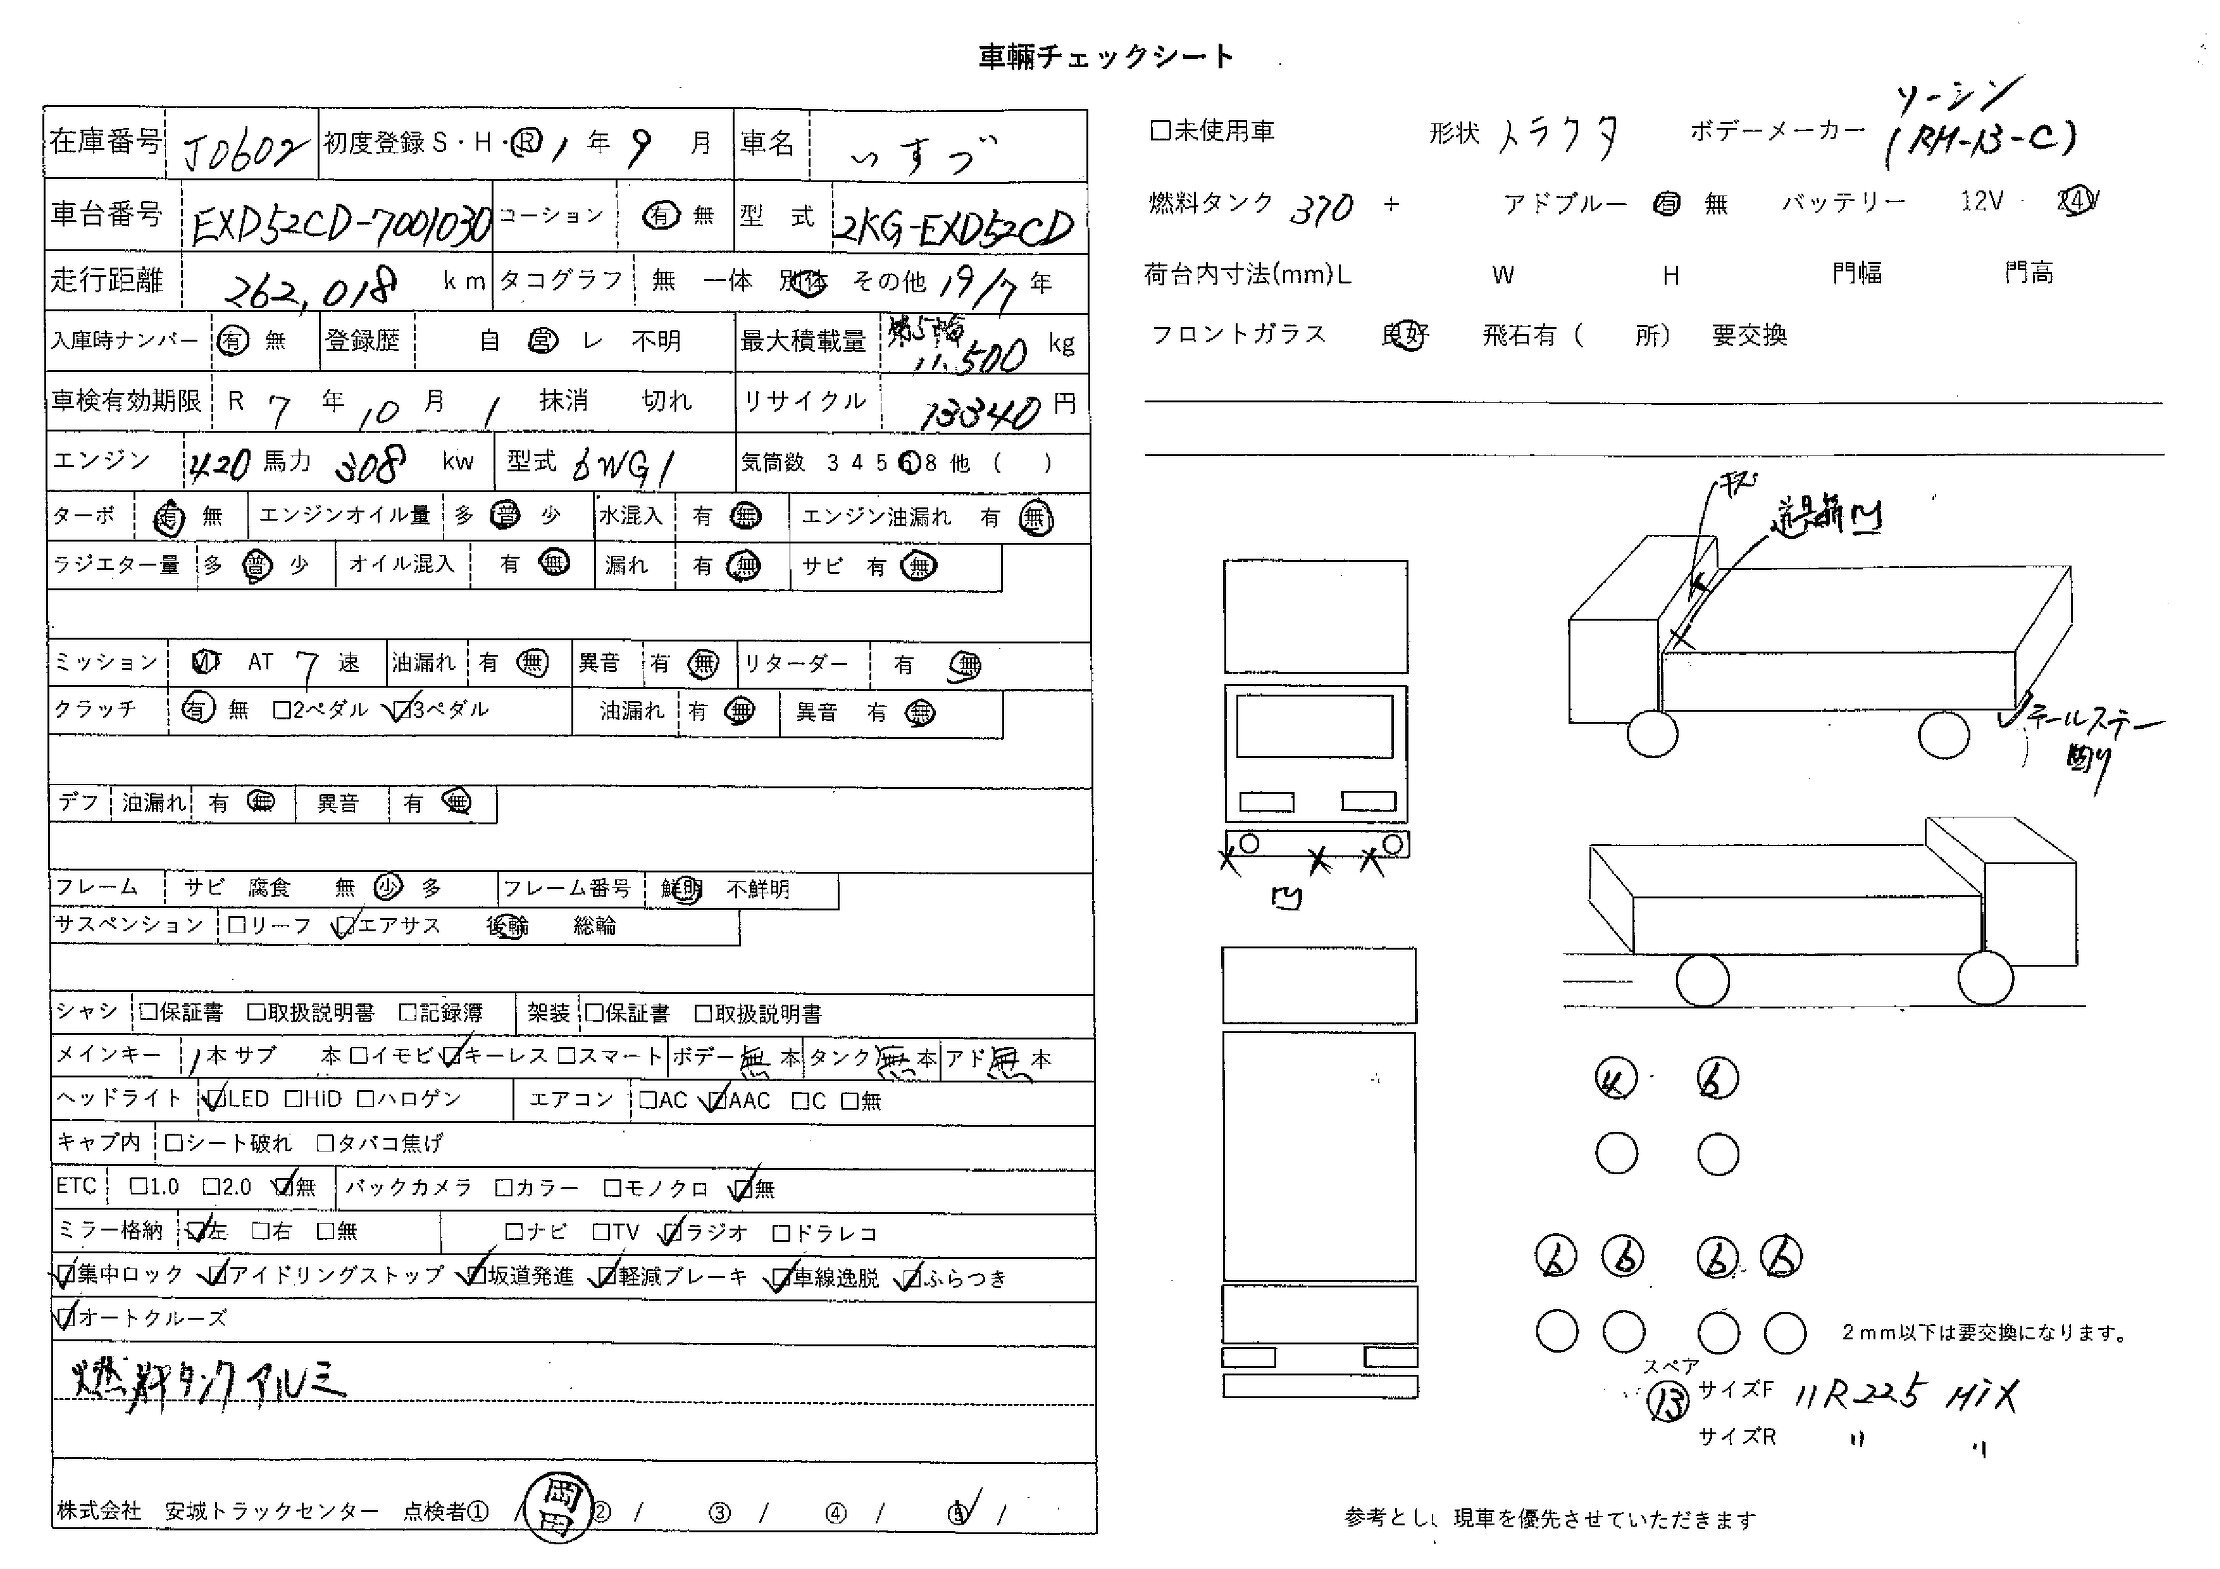 車輛チェックシート
在庫番号 J0602 初度登録 S・H・R 1 年 9 月 車名 いすゞ
車台番号 EXD52CD-7001030 コーション 有 無 型 式 2KG-EXD52CD
走行距離 262,018 km タコグラフ 無 一体 別体 その他 19/7 年
入庫時ナンバー 有 無 登録歴 自 営 レ 不明 最大積載量 第5輪 11,500 kg
車検有効期限 R 7 年 10 月 1 抹消 切れ リサイクル 13340 円
エンジン 420 馬力 308 kw 型式 6WG1 気筒数 3 4 5 6 8 他 ( )
ターボ 有 無 エンジンオイル量 多 普 少 水混入 有 無 エンジン油漏れ 有 無
ラジエター量 多 普 少 オイル混入 有 無 漏れ 有 無 サビ 有 無
ミッション MT AT 7 速 油漏れ 有 無 異音 有 無 リターダー 有 無
クラッチ 有 無 □2ペダル ☑3ペダル 油漏れ 有 無 異音 有 無
デフ 油漏れ 有 無 異音 有 無
フレーム サビ 腐食 無 少 多 フレーム番号 鮮明 不鮮明
サスペンション □リーフ ☑エアサス 後輪 総輪
シャシ □保証書 □取扱説明書 □記録簿 架装 □保証書 □取扱説明書
メインキー 1 本 サブ 本 □イモビ ☑キーレス □スマート ボデー 無 本 タンク 無 本 アド 無 本
ヘッドライト ☑LED □HiD □ハロゲン エアコン □AC ☑AAC □C □無
キャブ内 □シート破れ □タバコ焦げ
ETC □1.0 □2.0 ☑無 バックカメラ □カラー □モノクロ ☑無
ミラー格納 ☑左 □右 □無 □ナビ □TV ☑ラジオ □ドラレコ
☑集中ロック ☑アイドリングストップ ☑坂道発進 ☑軽減ブレーキ ☑車線逸脱 ☑ふらつき
☑オートクルーズ
燃料タンクアルミ
株式会社 安城トラックセンター 点検者① / 岡田 ② / ③ / ④ / ⑤ /
□未使用車 形状 トラクタ ボデーメーカー ソーシン
(RH-13-C)
燃料タンク 370 + アドブルー 有 無 バッテリー 12V・24V
荷台内寸法(mm)L W H 門幅 門高
フロントガラス 良好 飛石有 ( 所) 要交換
キズ
テールステー
凹
4 6
6 6 6 6
2mm以下は要交換になります。
スペア
13 サイズF 11R225 MiX
サイズR 〃 〃
参考とし、現車を優先させていただきます